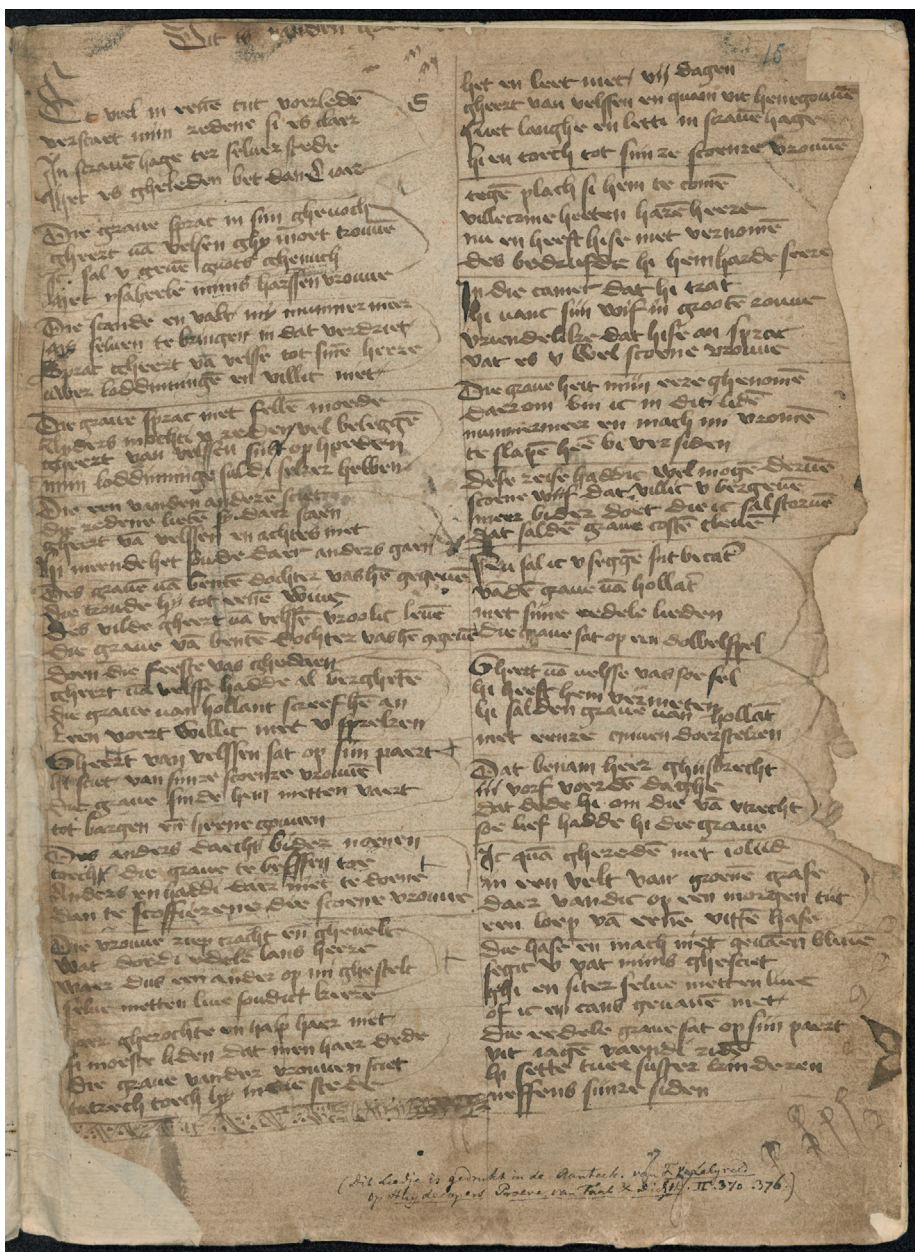 Dit is vanden
16
Et viel in eene tiit voerlede
verstaet miin redene si es claer
In scrauehage ter seluer stede
Het es gheleden bet dan C iaer
Die graue sprac in siin ghevoech
gheert va velsen ghi moet trouwe
Ic sal v geue guots ghenuech
Die scande en valt mi nummermeer
mi seluen te bringen in dat verdriet
Sprac gheert va velsse tot sine heere
uwer loddinninghe en villic niet
Die graue sprac met felle moede
Anders mochti v reden wel beleggē
gheert van velssen siit op hoeden
miin loddinninge suldi seker hebben
Die een vanden anderen sciet
die redene lieten si daer staen
Gheert vā velssen en achtes niet
hi meende het soude daer anders gaen
Des grauē vā bentē dochter was hē gegeuen
Die troude hi tot eenē wiue
Des vilde gheert vā velssē vroolic leuē
Die graue vā bentē dochter vas hē gegeuē
Doen die feeste vas ghedaen
gheert vā velsse hadde al vergheten
die graue van hollant screef hē an
Een voert willic met v spreken
Gheert van velssen sat op siin paert
hi sciet van siinre scoenre vrouwē
Die graue sinde hem metten vaert
tot bargen en heenegouwen
Des anders daechs bider noenen
toech die graue te velssen toe
Anders en haddi daer niet te doene
dan te scoffierene die scoene vrouwe
Die vrouwe riep cracht en ghewelt
Wat doedi edele lans heere
Waer dus een ander op mi ghestelt
selue metten liue soudiit keeren
haer gherochte en halp haer niet
si moeste liden dat men haer dede
die graue vander vrouwen sciet
tutrech toech hi in die stede
het en leet niet viij dagen
gheert van velssen en quam uut henegouwē
niet langhe en letti in scrauehage
hi en toech tot siinre scoenre vrouwē
tegē plach si hem te comē
willecome heeten harē heere
nu en heeft hise niet vernomē
des bedroefde hi hem harde seere
In die camer dat hi trat
hi vant siin wiif in groote rouwe
vriendelike dat hise an sprac
vat es v wel scoene vrouwe
Die graue heit miin eere ghenomē
daerom bin ic in dit lidē
nummermeer en mach mi vromē
te slapē hēē bi uer siden
Dese reise haddic wel mogē deruē
scoene wiif dat villic v vergeuē
meer bider doet die ic sal steruē
dat saldē graue costē tleuē
Nu sal ic v seggē
vādē graue vā hollāt
met sine eedele lieden
Die graue sat op een dobbelspel
Gheert vā velsse vas soe fel
hi heeft hem vermeten
hi salden graue van hollāt
met eenre cniuen doersteken
Dat benam heer ghiisbrecht
iij vorf voerdē daghe
dat dede hi om die vā vtrecht
soe lief hadde hi die graue
Ic quā gheredē met ioliid
in een velt van groene grase
daer vandic op een morgen tiit
een loep vā eenē vittē hase
die hase en mach niet geuāen bliuē
segic v vat miins ghesciet
ghi en siter selue metten liue
of ic en cans geuauē niet
Die eedele graue sat op siin paert
vit iagē vaendi ridē
hi sette twee suster kinderen
neffens siinre siden
(Dit liedje is gedrukt in de Aantek. van F. v. Lelyveld
op Huydecopers Proeve van Taal & Dichtk. II. 370. 376.)